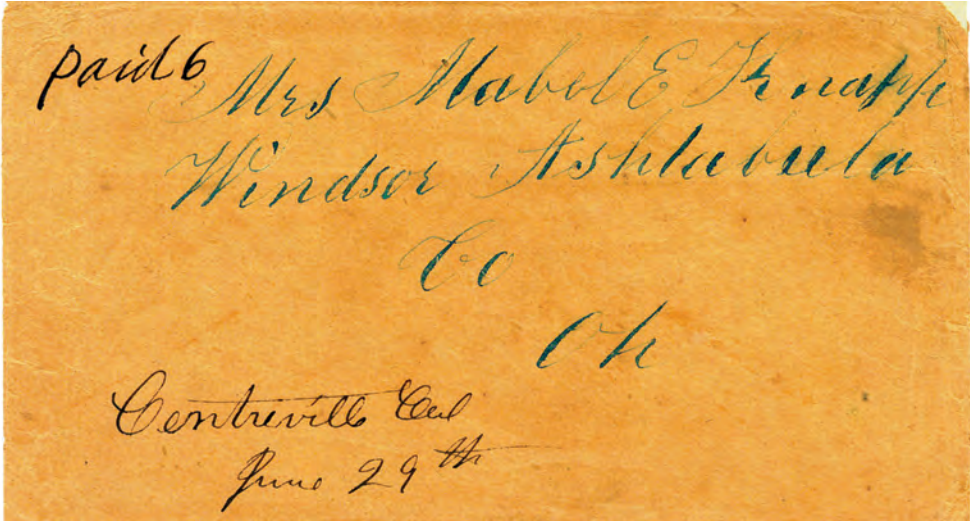 paid 6
Mrs Mabel E Knapp
Windsor Ashtabula
Co
Oh
Centreville Cal
June 29th